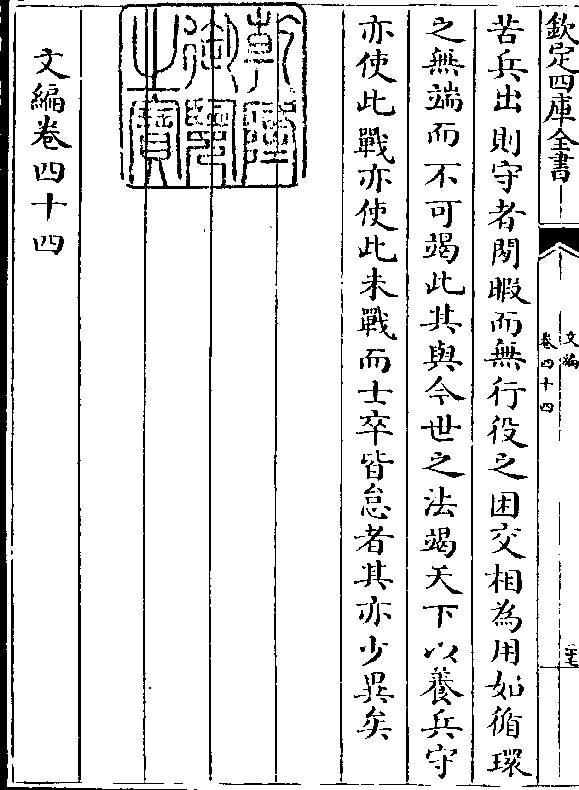 欽定四庫全書
文編
卷四十四
苦兵出則守者閒暇而無行役之困交相為用如循環
之無端而不可竭此其與今世之法竭天下以養兵守
亦使此戰亦使此未戰而士卒皆怠者其亦少異矣
乾隆
御覽
之寶
文編卷四十四